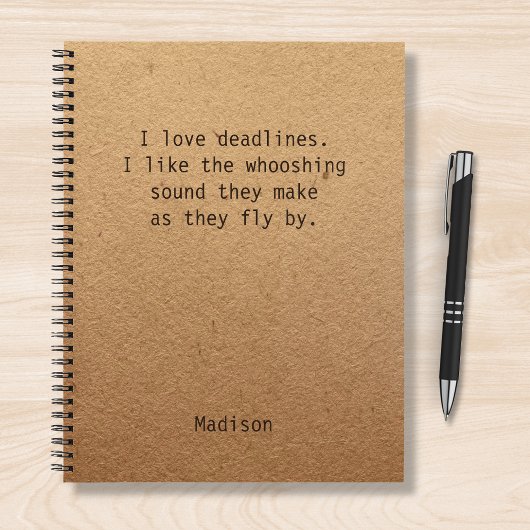 I love deadlines.
I like the whooshing
sound they make
as they fly by.
Madison